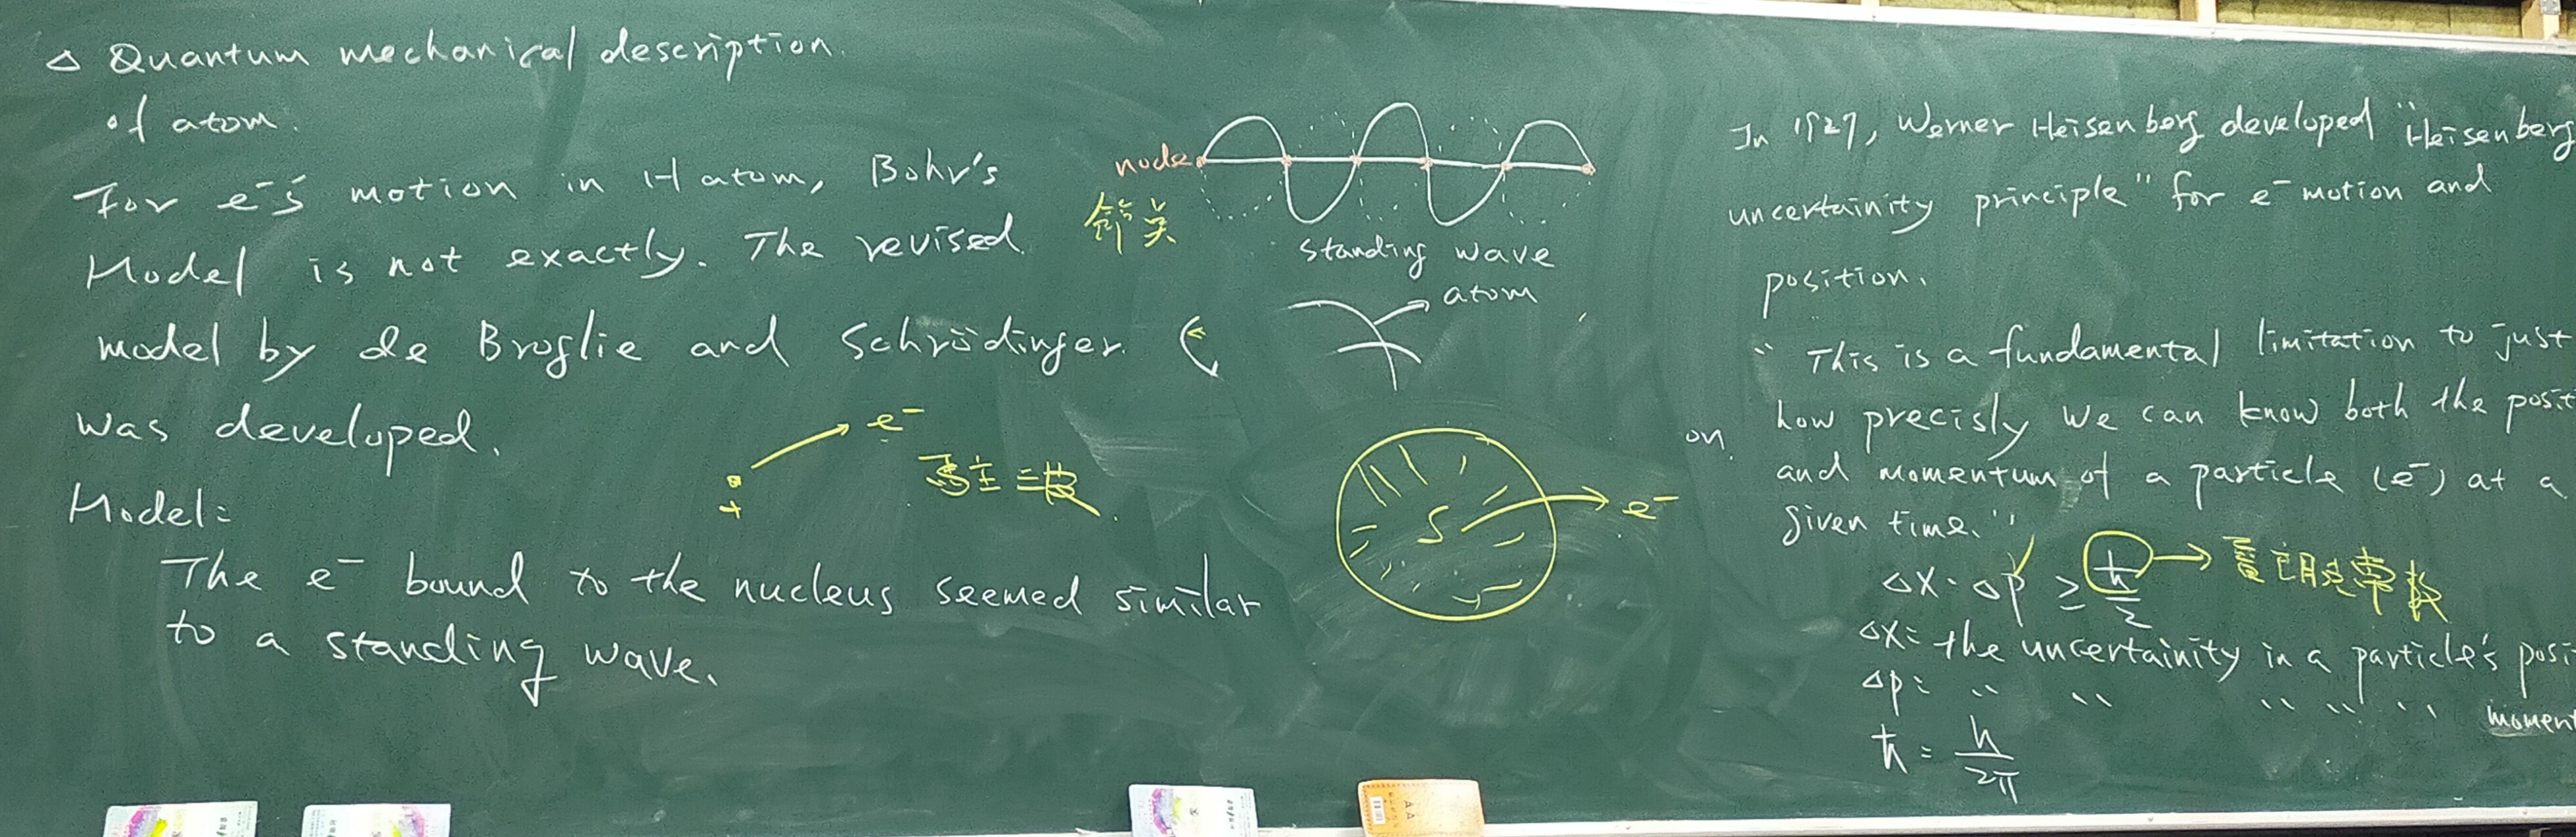 △ Quantum mechanical description.
of atom.
For e⁻'s motion in H atom, Bohr's
Model is not exactly. The revised
model by de Broglie and Schrödinger.
was developed.
Model:
The e⁻ bound to the nucleus seemed similar
to a standing wave.
e⁻
+
node
節
standing wave
atom
S
e⁻
In 1927, Werner Heisenberg developed "Heisenberg
uncertainity principle" for e⁻ motion and
position.
"This is a fundamental limitation to just
how precisly we can know both the posit
on
and momentum of a particle (e⁻) at a
given time."
△x·△p ≥ ħ/2
常數
△x: the uncertainity in a particle's posi
△p: " " " " " moment
ħ = h/2π